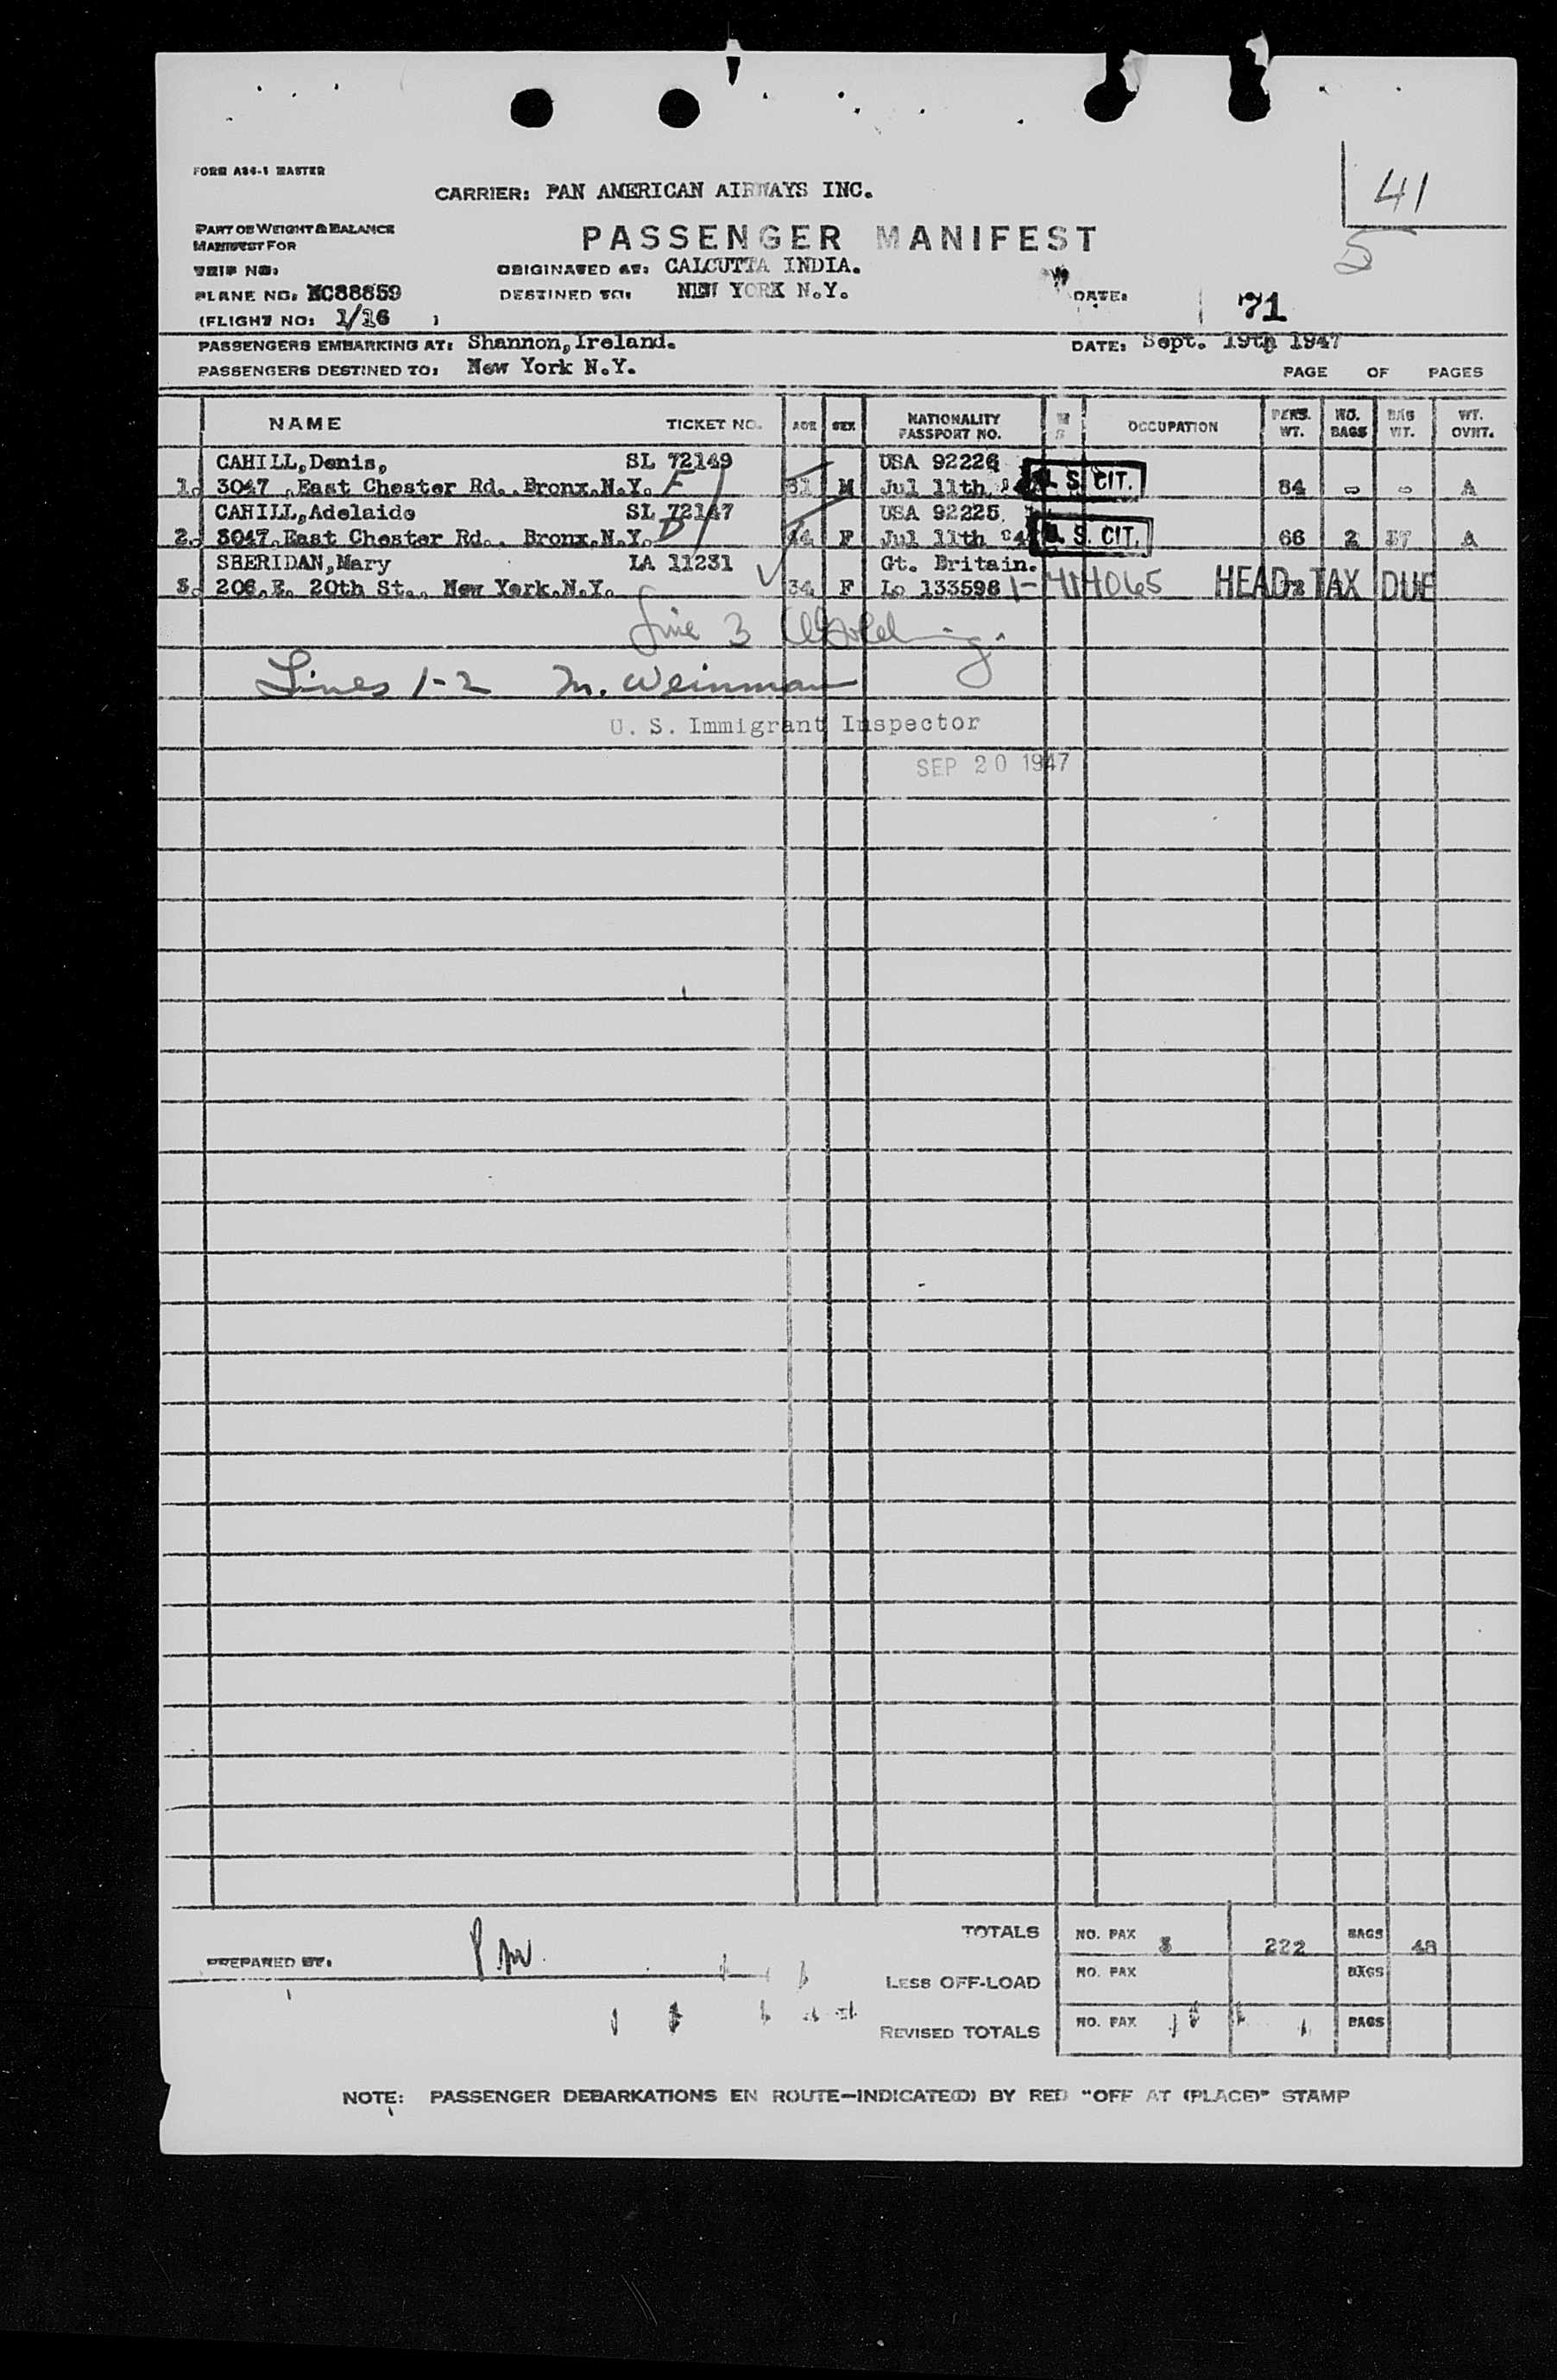 41
FORM A84-1 MASTER
CARRIER: PAN AMERICAN AIRWAYS INC.
5
PART OF WEIGHT & BALANCE
MANIFEST FOR
PASSENGER MANIFEST
TRIP NO:
ORIGINATED AT: CALCUTTA INDIA.
PLANE NO: NC88859
DESTINED TO: NEW YORK N.Y.
DATE: 71
(FLIGHT NO: 1/16 )
PASSENGERS EMBARKING AT: Shannon,Ireland.
DATE: Sept. 19th 1947
PASSENGERS DESTINED TO: New York N.Y.
PAGE OF PAGES
NAME TICKET NO. AGE SEX NATIONALITY PASSPORT NO. M S OCCUPATION PERS. WT. NO. BAGS BAG WT. WT. OVHT.
CAHILL,Denis, SL 72149 USA 92226
1. 3047 ,East Chester Rd.,Bronx,N.Y. F 31 M Jul 11th U. S. CIT. 84 - - A
CAHILL,Adelaide SL 72147 USA 92225
2. 3047,East Chester Rd., Bronx,N.Y. F Jul 11th U. S. CIT. 66 2 A
SHERIDAN,Mary LA 11231 Gt. Britain.
3. 206,E. 20th St., New York,N.Y. 34 F Lo 133598 1-414065 72 HEAD TAX DUE
Line 3
Lines 1-2 M. Weinman
U. S. Immigrant Inspector
SEP 20 1947
TOTALS NO. PAX 3 222 BAGS 48
PREPARED BY:
LESS OFF-LOAD NO. PAX BAGS
REVISED TOTALS NO. PAX BAGS
NOTE: PASSENGER DEBARKATIONS EN ROUTE—INDICATE(D) BY RED "OFF AT (PLACE)" STAMP